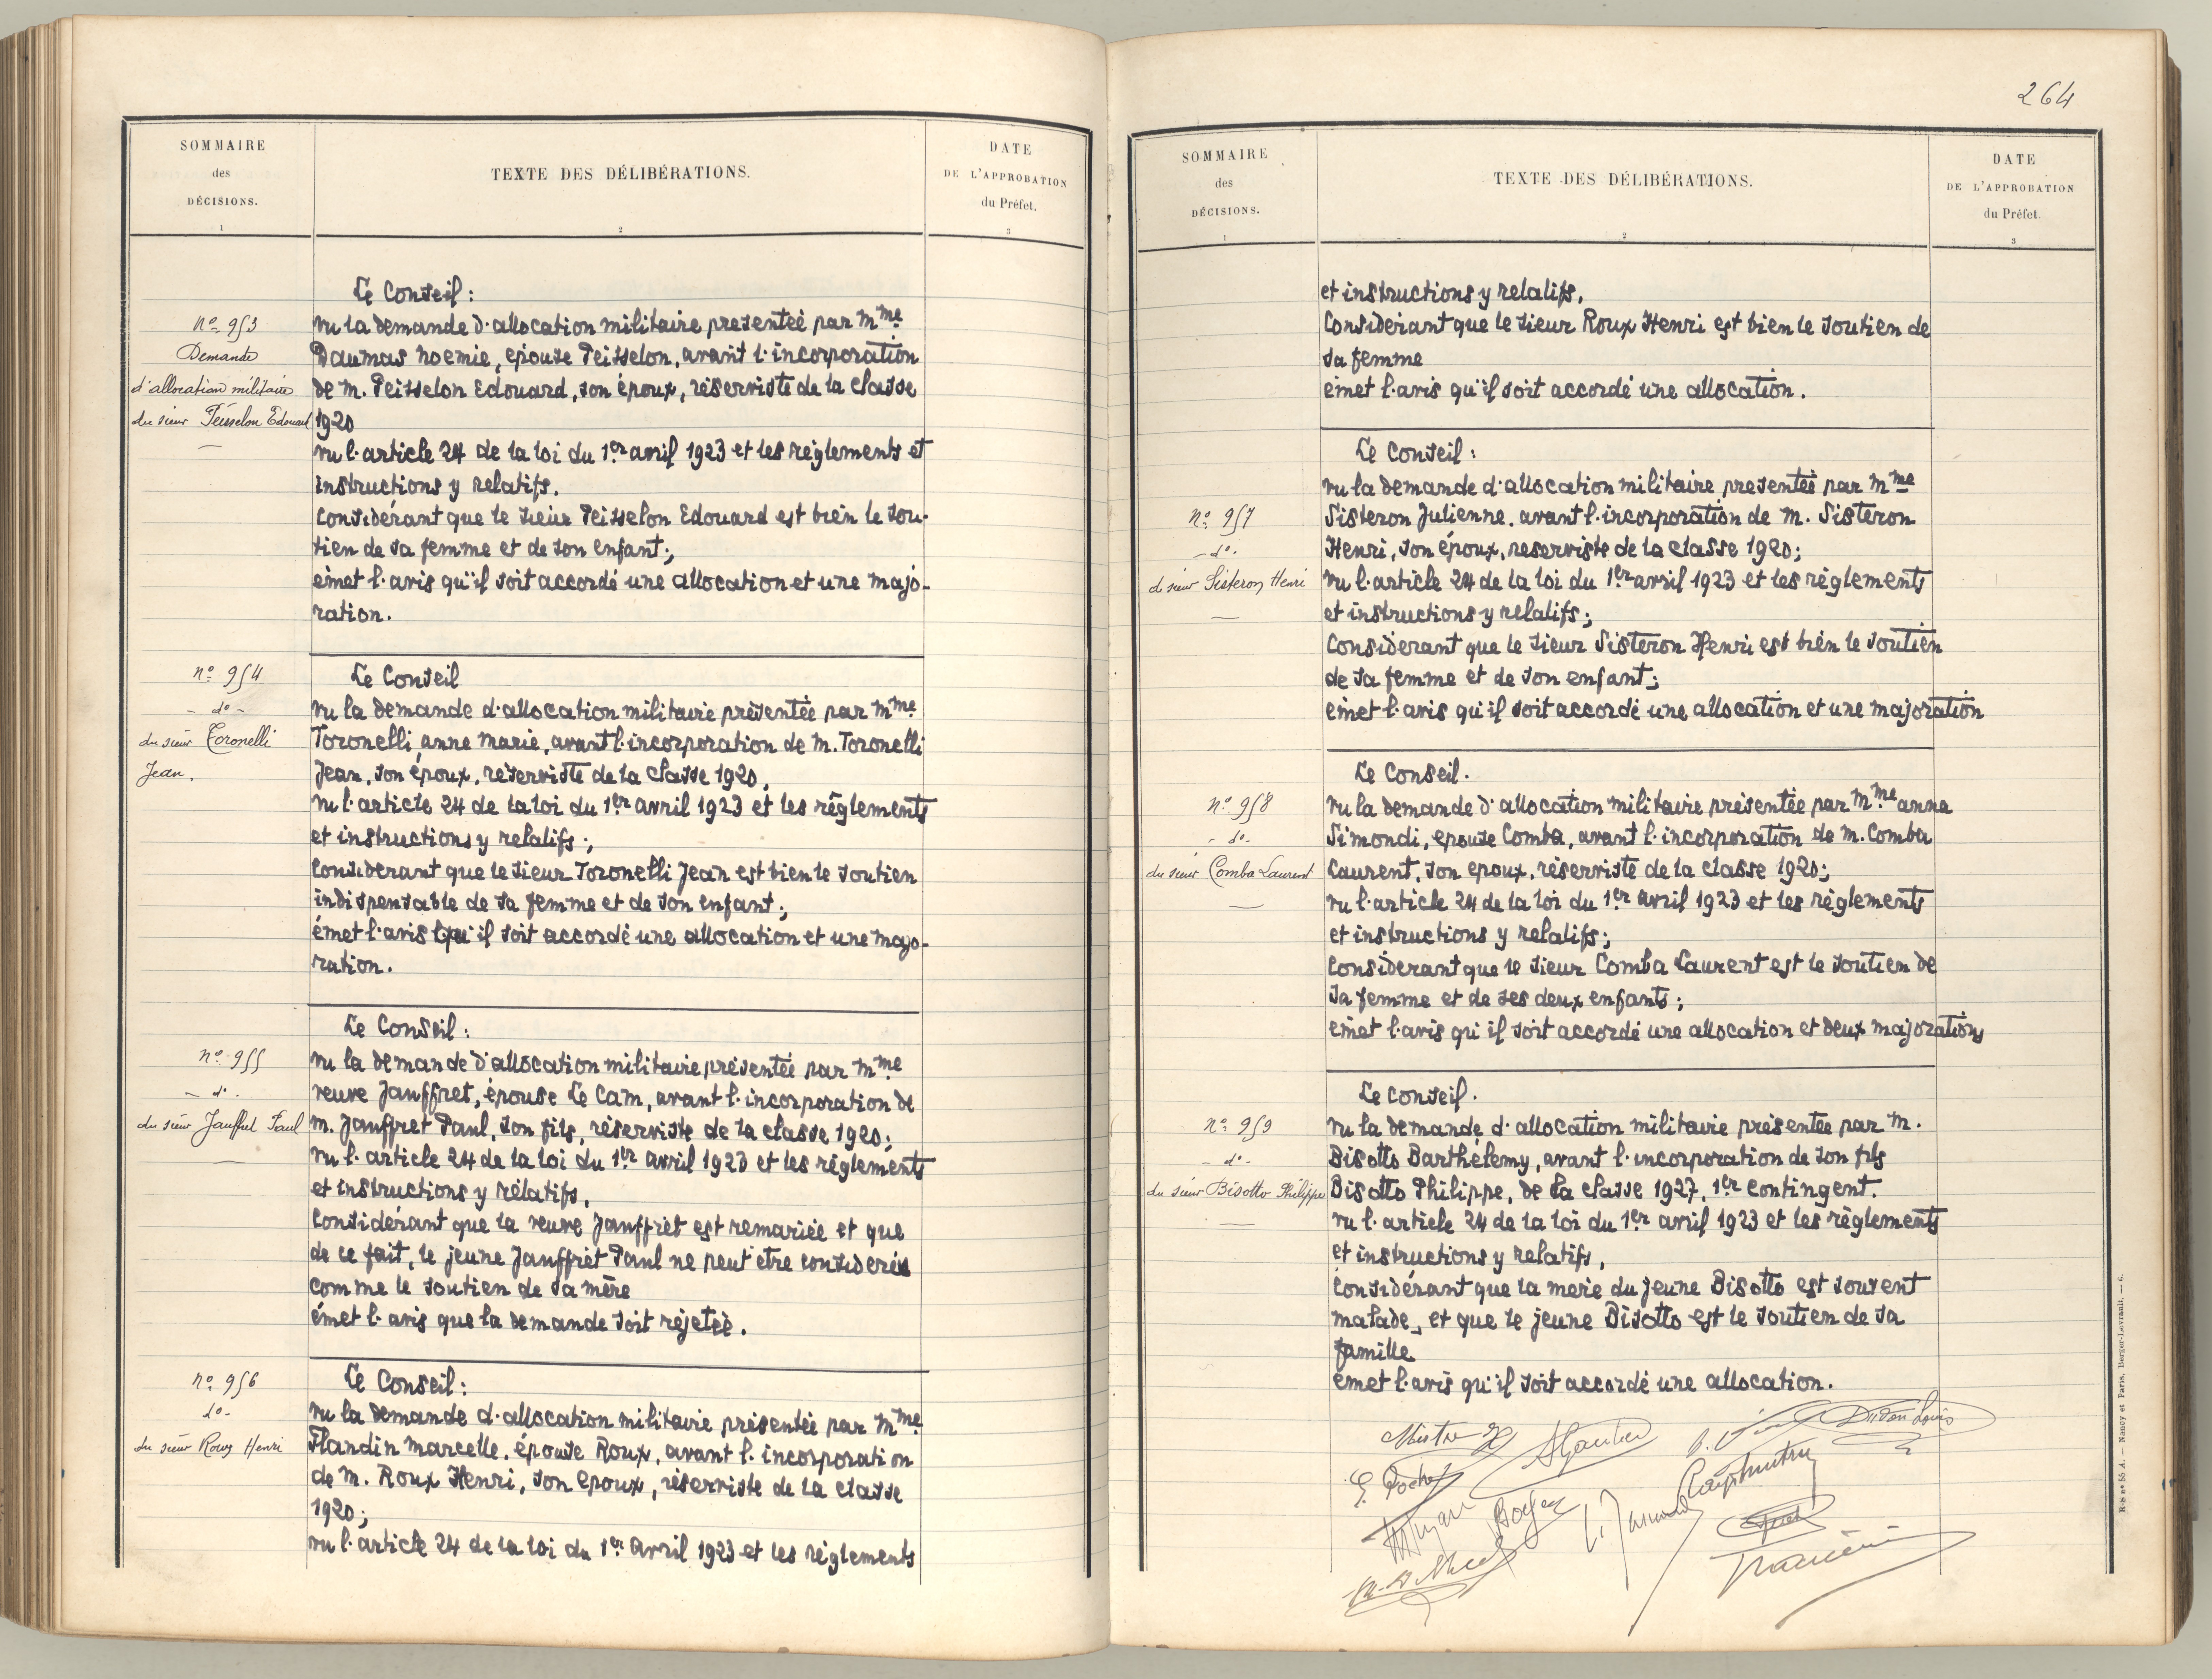 SOMMAIRE
des
DÉCISIONS.
1
TEXTE DES DÉLIBÉRATIONS.
2
DATE
DE L'APPROBATION
du Préfet.
3
Le Conseil :
nº 953
Demande
d'allocation militaire
du sieur Peisselon Edouard
vu la demande d'allocation militaire presentée par Mme
Daumas Noemie, epouse Peisselon, avant l'incorporation
de M. Peisselon Edouard, son époux, réserviste de la classe
1920
vu l'article 24 de la loi du 1er avril 1923 et les réglements et
instructions y relatifs.
Considérant que le sieur Peisselon Edouard est bien le sou-
tien de sa femme et de son enfant;
émet l'avis qu'il soit accordé une allocation et une majo-
ration.
nº 954
- do -
du sieur Toronelli
Jean.
Le Conseil
vu la demande d'allocation militaire présentée par Mme
Toronelli anne Marie, avant l'incorporation de M. Toronelli
Jean, son époux, réserviste de la classe 1920,
vu l'article 24 de la loi du 1er avril 1923 et les réglements
et instructions y relatifs;
Considerant que le sieur Toronelli Jean est bien le soutien
indispensable de sa femme et de son enfant;
émet l'avis qu'il soit accordé une allocation et une majo-
ration.
nº 955
- do -
du sieur Jauffret Paul
Le Conseil :
vu la demande d'allocation militaire présentée par Mme
veuve Jauffret, épouse Le Cam, avant l'incorporation de
M. Jauffret Paul, son fils, réserviste de la classe 1920;
vu l'article 24 de la loi du 1er avril 1923 et les réglements
et instructions y rélatifs,
Considérant que la veuve Jauffret est remariée et que
de ce fait, le jeune Jauffret Paul ne peut etre consideré
comme le soutien de sa mère
émet l'avis que la demande soit rejetée.
nº 956
do -
du sieur Roux Henri
Le Conseil :
vu la demande d'allocation militaire présentée par Mme
Flandin Marcelle, épouse Roux, avant l'incorporation
de M. Roux Henri, son epoux, réserviste de la classe
1920;
vu l'article 24 de la loi du 1er avril 1923 et les réglements
264
SOMMAIRE
des
DÉCISIONS.
1
TEXTE DES DÉLIBÉRATIONS.
2
DATE
DE L'APPROBATION
du Préfet.
3
et instructions y relatifs,
Considérant que le sieur Roux Henri est bien le soutien de
sa femme
émet l'avis qu'il soit accordé une allocation.
nº 957
- do -
d sieur Sisteron Henri
Le Conseil :
vu la demande d'allocation militaire presentée par Mme
Sisteron Julienne, avant l'incorporation de M. Sisteron
Henri, son époux, reserviste de la classe 1920;
vu l'article 24 de la loi du 1er avril 1923 et les réglements
et instructions y relatifs;
Considerant que le sieur Sisteron Henri est bien le soutien
de sa femme et de son enfant;
émet l'avis qu'il soit accordé une allocation et une majoration
nº 958
- do -
du sieur Comba Laurent
Le Conseil.
vu la demande d'allocation militaire présentée par Mme anna
Simondi, epouse Comba, avant l'incorporation de M. Comba
Laurent, son epoux, réserviste de la classe 1920;
vu l'article 24 de la loi du 1er avril 1923 et les réglements
et instructions y relatifs;
Considerant que le sieur Comba Laurent est le soutien de
sa femme et de ses deux enfants;
émet l'avis qu'il soit accordé une allocation et deux majorations
nº 959
- do -
du sieur Bisotto Philippe
Le Conseil.
vu la demande d'allocation militaire présentée par M.
Bisotto Barthélemy, avant l'incorporation de son fils
Bisotto Philippe, de la classe 1927, 1er contingent.
vu l'article 24 de la loi du 1er avril 1923 et les réglements
et instructions y relatifs,
Considérant que la mere du jeune Bisotto est souvent
malade, et que le jeune Bisotto est le soutien de sa
famille
émet l'avis qu'il soit accordé une allocation.
R-S nº 55 A. — Nancy et Paris, Berger-Levrault. — 6.